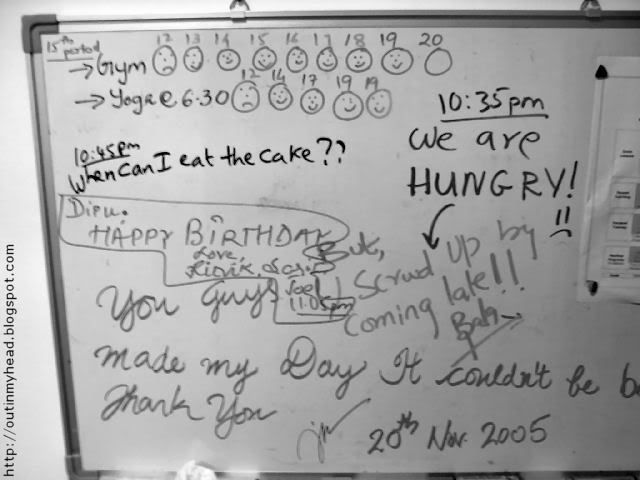 15th period
12 13 14 15 16 17 18 19 20
→Gym
12 14 17 19 19
→Yoga @ 6.30
10:35pm
We are
HUNGRY!
10:45pm
When can I eat the cake??
Dipu.
HAPPY BIRTHDAY
Love,
Joel
11:05pm
But,
Scrwd up by
coming late!!
Bah
You Guys
made my Day It couldn't be
Thank You
20th Nov 2005
http://outinmyhead.blogspot.com